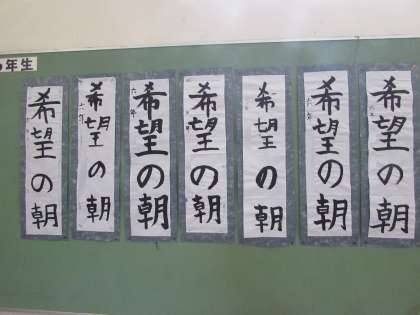 年生
希望の朝
希望の朝
希望の朝
希望の朝
希望の朝
希望の朝
希望の朝